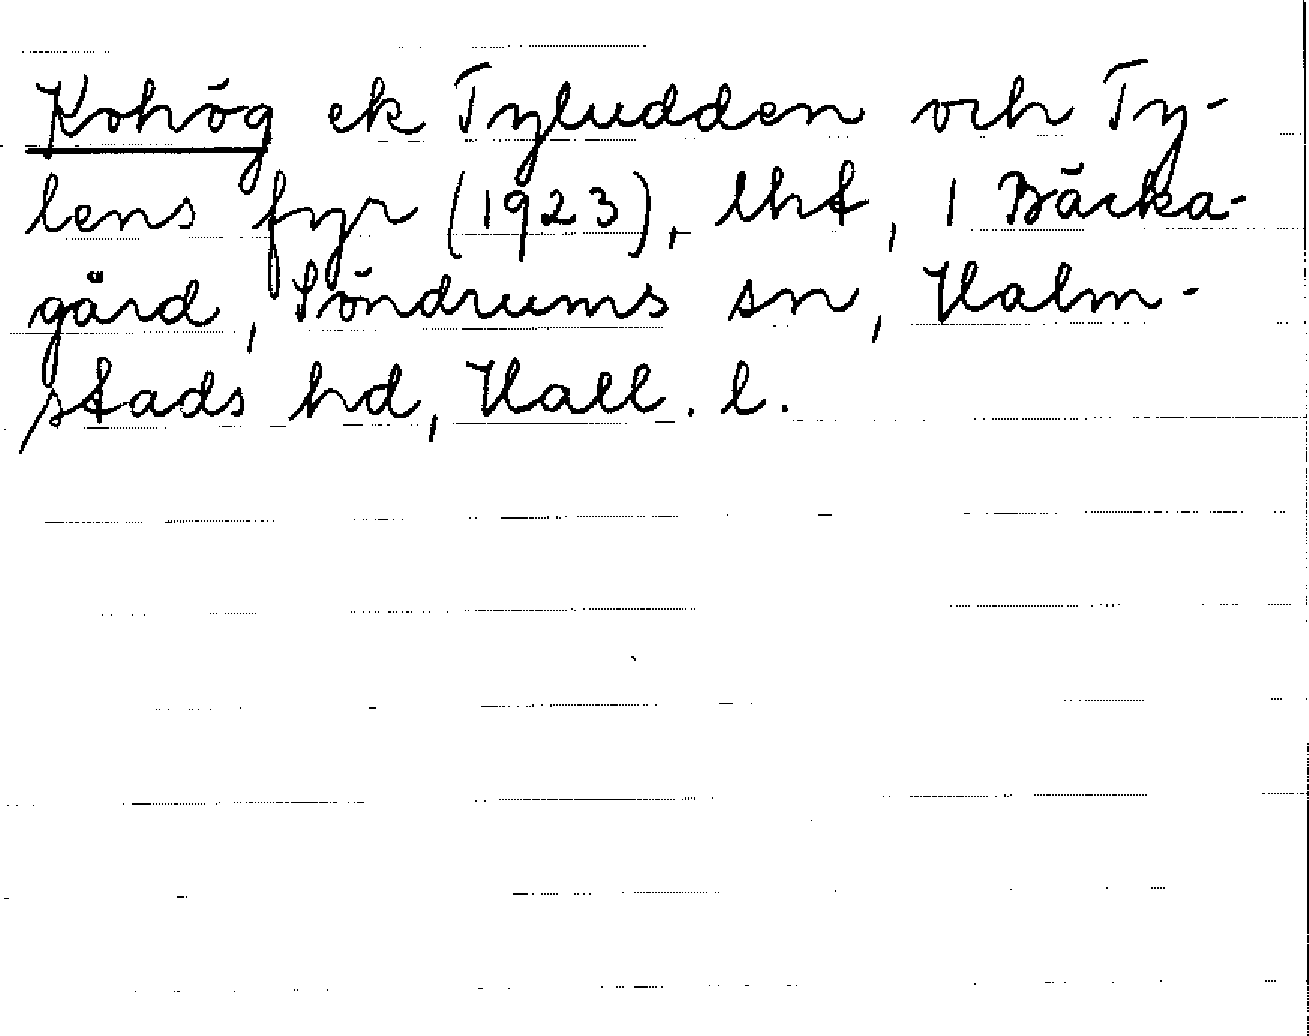 Kohög ek Tyludden och Ty-
lens fyr (1923), lht, 1 Bäcka-
gård, Söndrums sn, Halm-
stads hd, Hall. l.